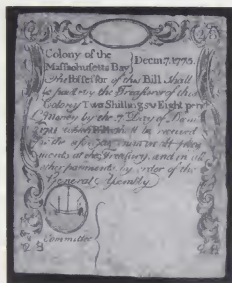 Colony of the
Massachusetts Bay } Decm.7.1775.
The Possessor of this Bill shall
be paid by the Treasurer of this
Colony Two Shillings & Eight penc
L. Money by the 7 Day of Decm.
1781 which Bill shall be received
in all pay
ments at the Treasury, and in all
other payments by order of the
General Assembly
Committee